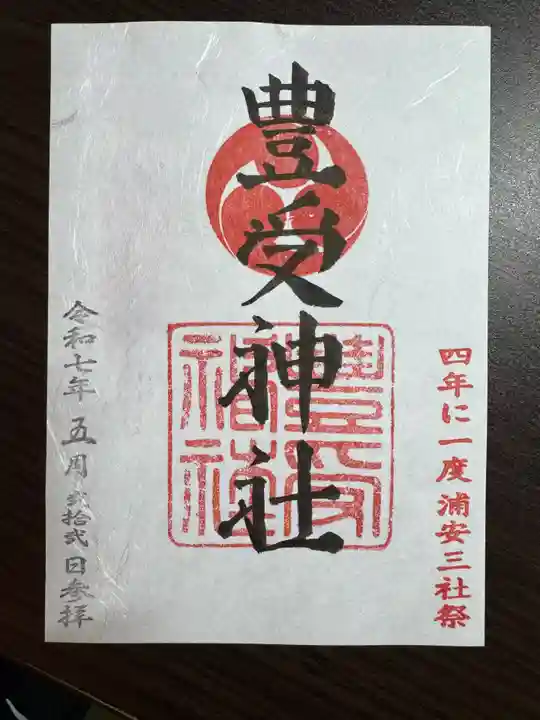 四年に一度浦安三社祭
豊受神社
豊受
神社
令和七年五月弐拾弐日参拝